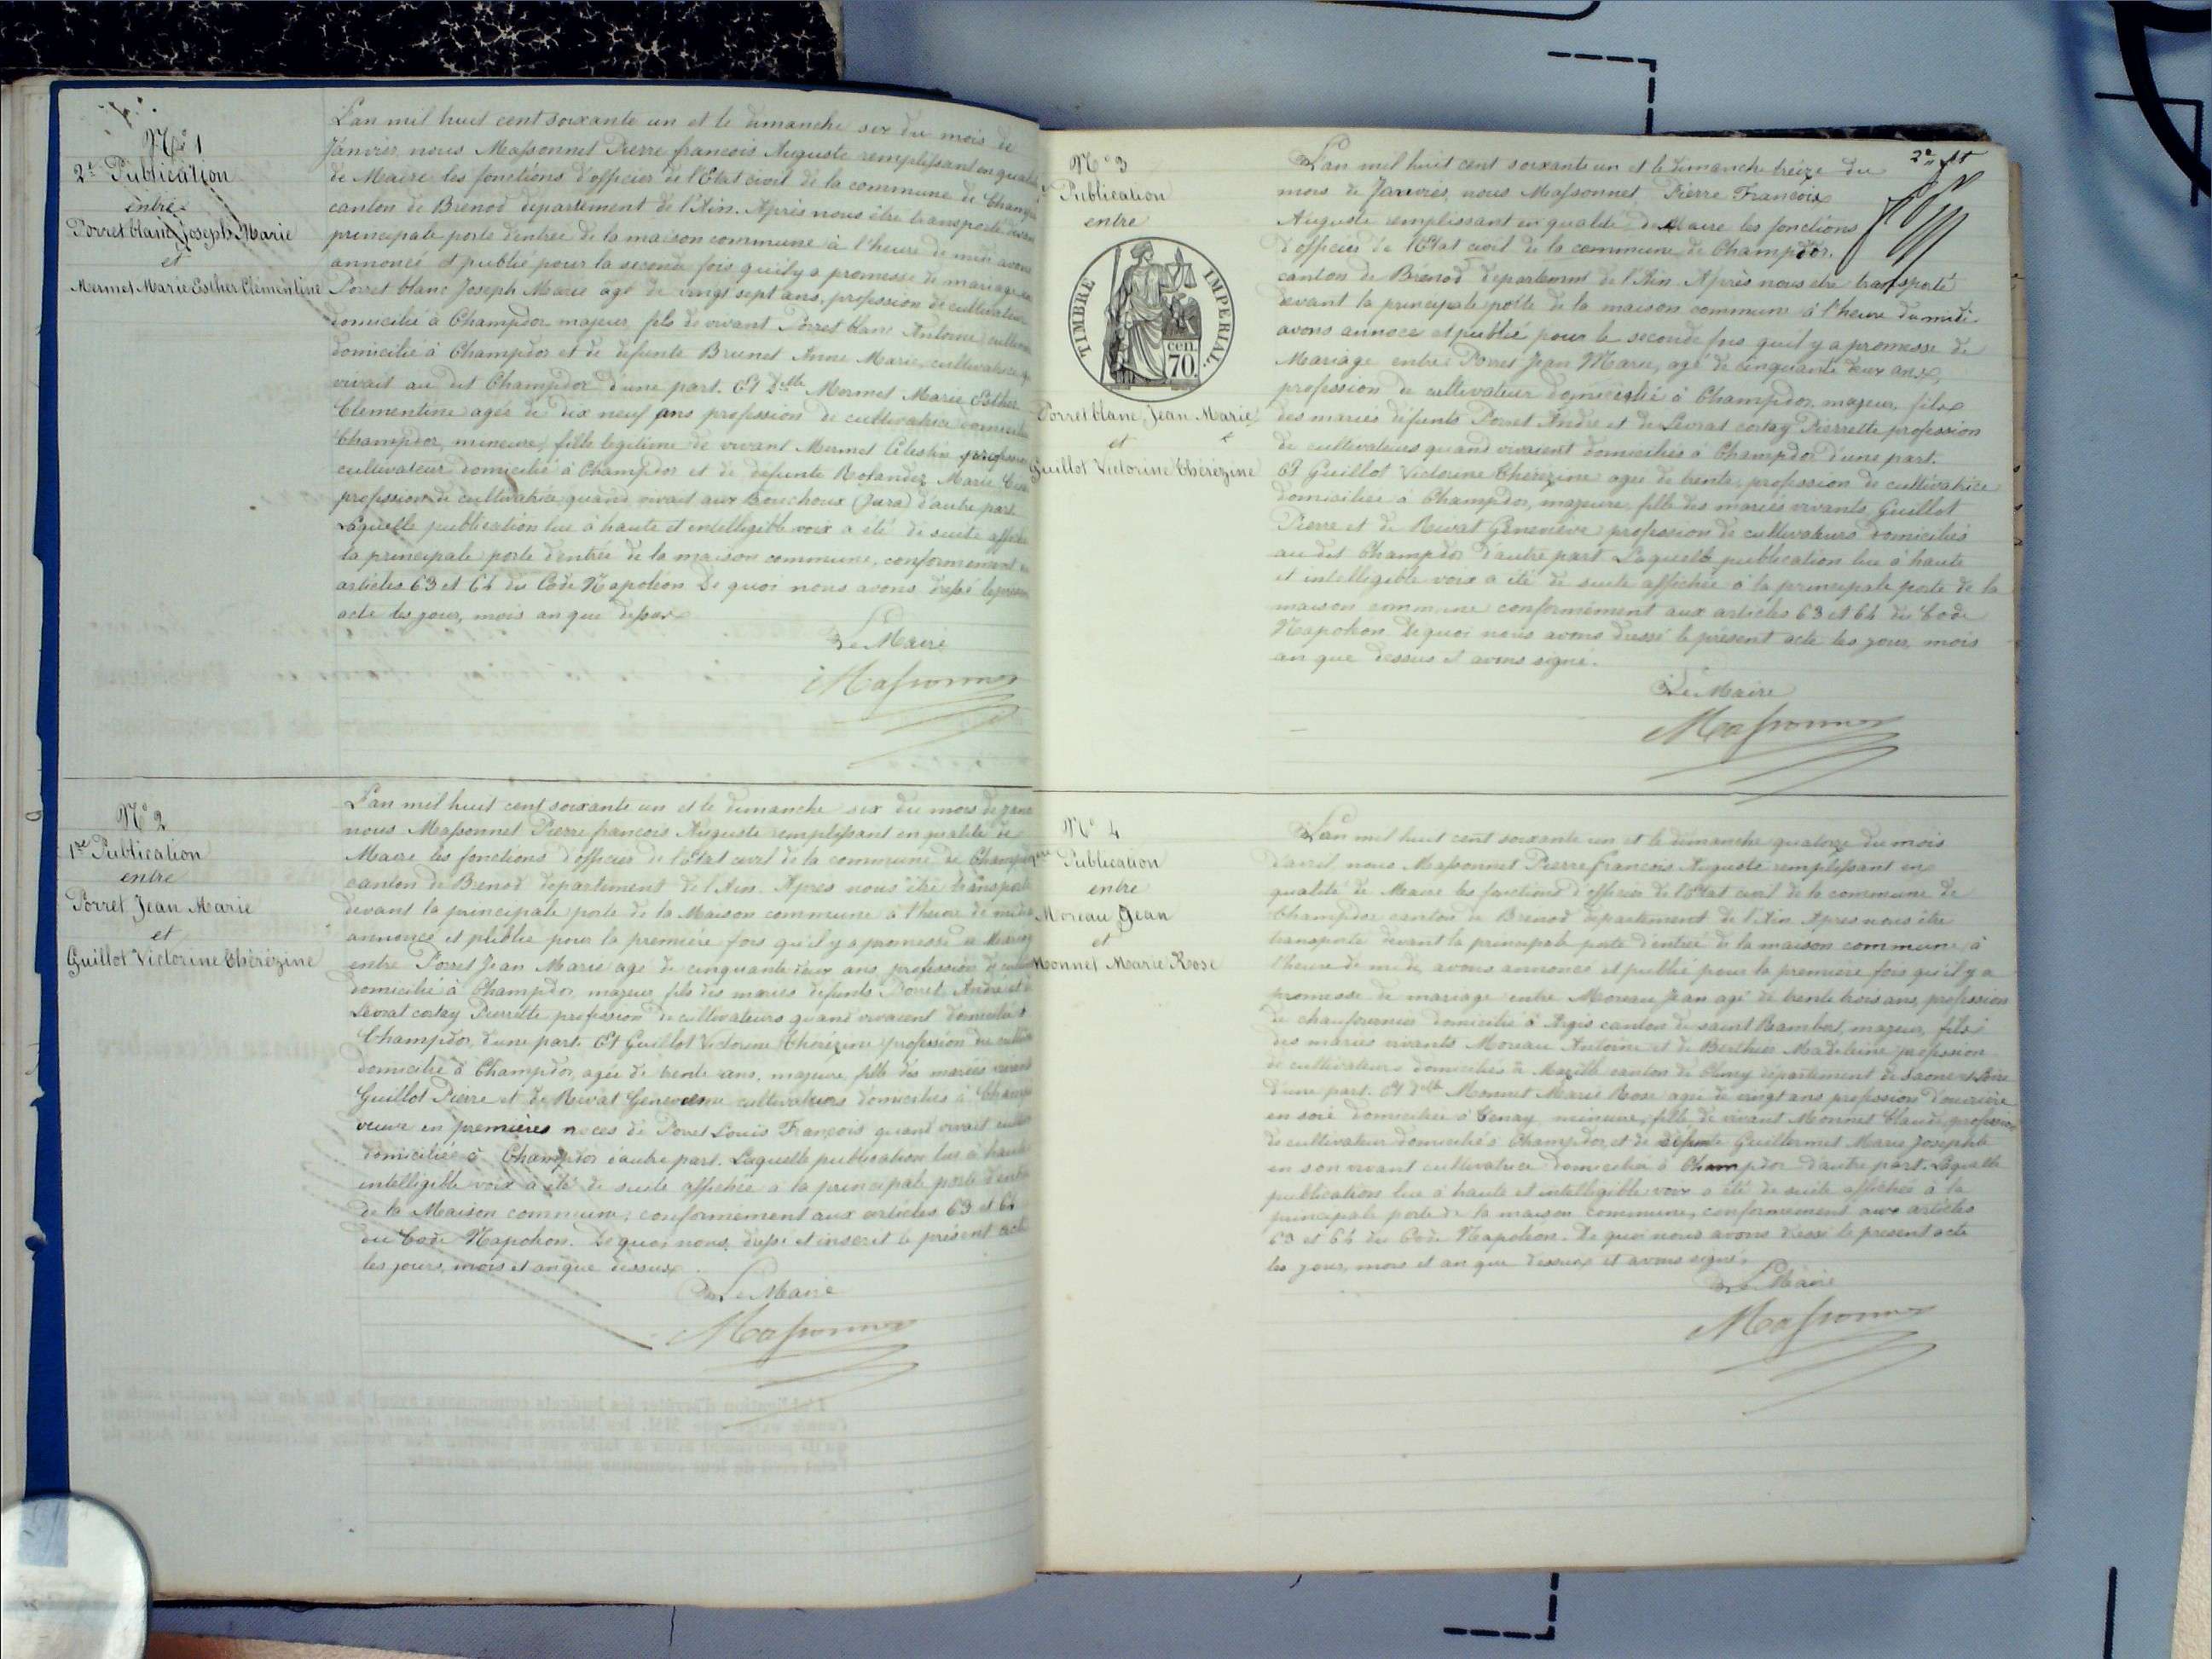 N° 1
2e Publication
entre
Porret blanc Joseph Marie
et
Mermet Marie Esther Clémentine
L'an mil huit cent soixante un et le dimanche six du mois de
Janvier, nous Massonnet Pierre francois Auguste remplissant en qualité
de Maire les fonctions d'officier de l'Etat civil de la commune de Champ
canton de Brénod département de l'Ain. Après nous être transporté devant
principale porte d'entrée de la maison commune à l'heure de midi avons
annoncé et publié pour la seconde fois qu'il y a promesse de mariage
Porret blanc Joseph Marie agé de vingt sept ans, profession de cultivateur
domicilié à Champdor majeur, fils de vivant Porret blanc Antoine
domicilié à Champdor et de défunte Brunet Anne Marie, cultivatrice
vivait au dit Champdor d'une part. Et Delle Mermet Marie Esther
Clémentine agée de dix neuf ans profession de cultivatrice
Champdor, mineure, fille légitime de vivant Mermet Célestin profession
cultivateur domicilié à Champdor et de défunte Rolandez Marie
profession de cultivatrice quand vivait aux Bouchoux (Jura) d'autre part
Laquelle publication lue à haute et intelligible voix a été de suite
la principale porte d'entrée de la maison commune, conformément
articles 63 et 64 du Code Napoléon De quoi nous avons dressé le présent
acte les jour, mois an que dessus
Le Maire
Massonnet
N° 2
1re Publication
entre
Porret Jean Marie
et
Guillot Victorine Thérézine
L'an mil huit cent soixante un et le dimanche six du mois de
nous Massonnet Pierre francois Auguste remplissant en qualité de
Maire les fonctions d'officier de l'Etat civil de la commune de Champ
canton de Brenod département de l'Ain. Apres nous être transporté
devant la principale porte de la Maison commune à l'heure de midi
annoncé et publié pour la première fois qu'il y a promesse de
entre Porret Jean Marie agé de cinquante deux ans, profession de
domicilié à Champdor, majeur fils des mariés défunts Porret André et
Levrat cortay Pierrette, profession de cultivateurs quand vivaient domiciliés
Champdor, d'une part. Et Guillot Victorine Thérézine profession de
domicilié à Champdor, agée de trente ans, majeure, fille des mariés vivants
Guillot Pierre et de Rivat Genevieve cultivateurs domiciliés à
veuve en premières noces de Porret Louis François quand vivait
domiciliée à Champdor d'autre part. Laquelle publication lue à haute
intelligible voix a été de suite affichée à la principale porte
de la Maison commune, conformément aux articles 63 et 64
du Code Napoléon. De quoi nous dressé et inscrit le présent acte
les jours, mois et an que dessus
Le Maire
Massonnet
2e
N° 3
Publication
entre
TIMBRE IMPERIAL.
70 cen
Porret blanc Jean Marie
et
Guillot Victorine Thérézine
L'an mil huit cent soixante un et le dimanche treize du
mois de Janvier, nous Massonnet Pierre François
Auguste remplissant en qualité de Maire les fonctions
d'officier de l'Etat civil de la commune de Champdor.
canton de Brénod département de l'Ain Après nous être transporté
devant la principale porte de la maison commune à l'heure du midi
avons annoce et publié pour la seconde fois qu'il y a promesse de
Mariage entre Porret Jean Marie, agé de cinquante deux ans,
profession de cultivateur domicilié à Champdor, majeur, fils
des mariés défunts Porret André et de Levrat cortay Pierrette profession
de cultivateurs quand vivaient domiciliés à Champdor d'une part.
Et Guillot Victorine Thérézine agée de trente, profession de cultivatrice
domiciliée à Champdor, majeure, fille des mariés vivants Guillot
Pierre et de Rivat Génenève profession de cultivateurs domiciliés
au dit Champdor d'autre part Laquelle publication lue à haute
et intelligible voix a été de suite affichée à la principale porte de la
maison commune conformément aux articles 63 et 64 du Code
Napoléon De quoi nous avons dressé le présent acte les jour, mois
an que dessus et avons signé.
Le Maire
Massonnet
N° 4
Publication
entre
Moreau Jean
et
Monnet Marie Rose
L'an mil huit cent soixante un et le dimanche quatorze du mois
d'avril nous Massonnet Pierre françois Auguste remplissant en
qualité de Maire les fonctions d'officier de l'Etat civil de la commune de
Champdor canton de Brenod département de l'Ain Apres nous être
transporté devant la principale porte d'entrée de la maison commune, à
l'heure de midi, avons annoncé et publié pour la première fois qu'il y a
promesse de mariage entre Moreau Jean agé de trente trois ans, profession
de chaufournier domicilié à Argis canton de saint Rambert, majeur, fils
des mariés vivants Moreau Antoine et de Berthier Madeleine profession
de cultivateurs domiciliés à Mazille canton de Cluny département de Saone et Loire
d'une part. Et delle Monnet Marie Rose agée de vingt ans profession d'ouvrière
en soie domiciliée à Tenay, mineure, fille de vivant Monnet Claude, profession
de cultivateur domicilié à Champdor, et de défunte Guillermet Marie Josephte
en son vivant cultivatrice domiciliée à Champdor d'autre part. Laquelle
publication lue à haute et intelligible voix a été de suite affichée à la
principale porte de la maison commune, conformément aux articles
63 et 64 du Code Napoléon. De quoi nous avons dressé le présent acte
les jour, mois et an que dessus et avons signé.
Le Maire
Massonnet